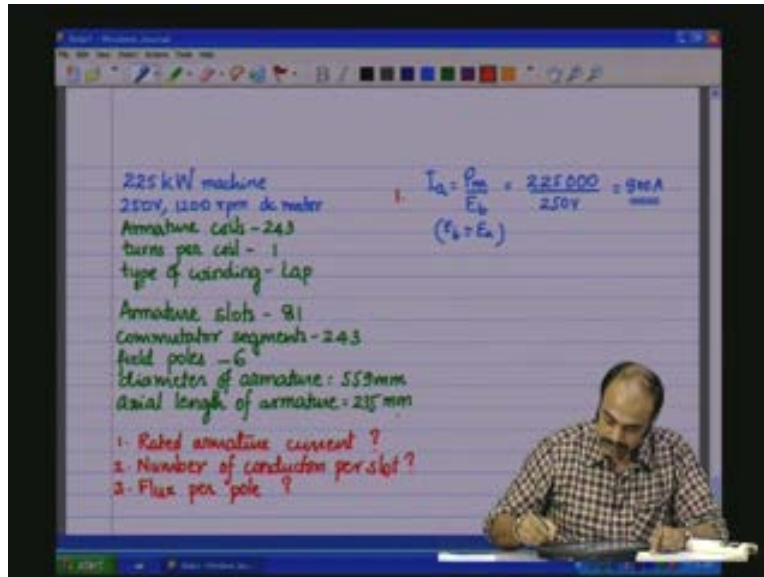 225kW machine
250V, 1200 rpm dc motor
Armature coils - 243
turns per coil - 1
type of winding - Lap
Armature slots - 81
commutator segments - 243
field poles - 6
diameter of armature = 559mm
axial length of armature = 235 mm
1. Rated armature current ?
2. Number of conductors per slot ?
3. Flux per pole ?
1. Ia = Pm/Eb = 225000/250V = 900A
(Eb = Ea)